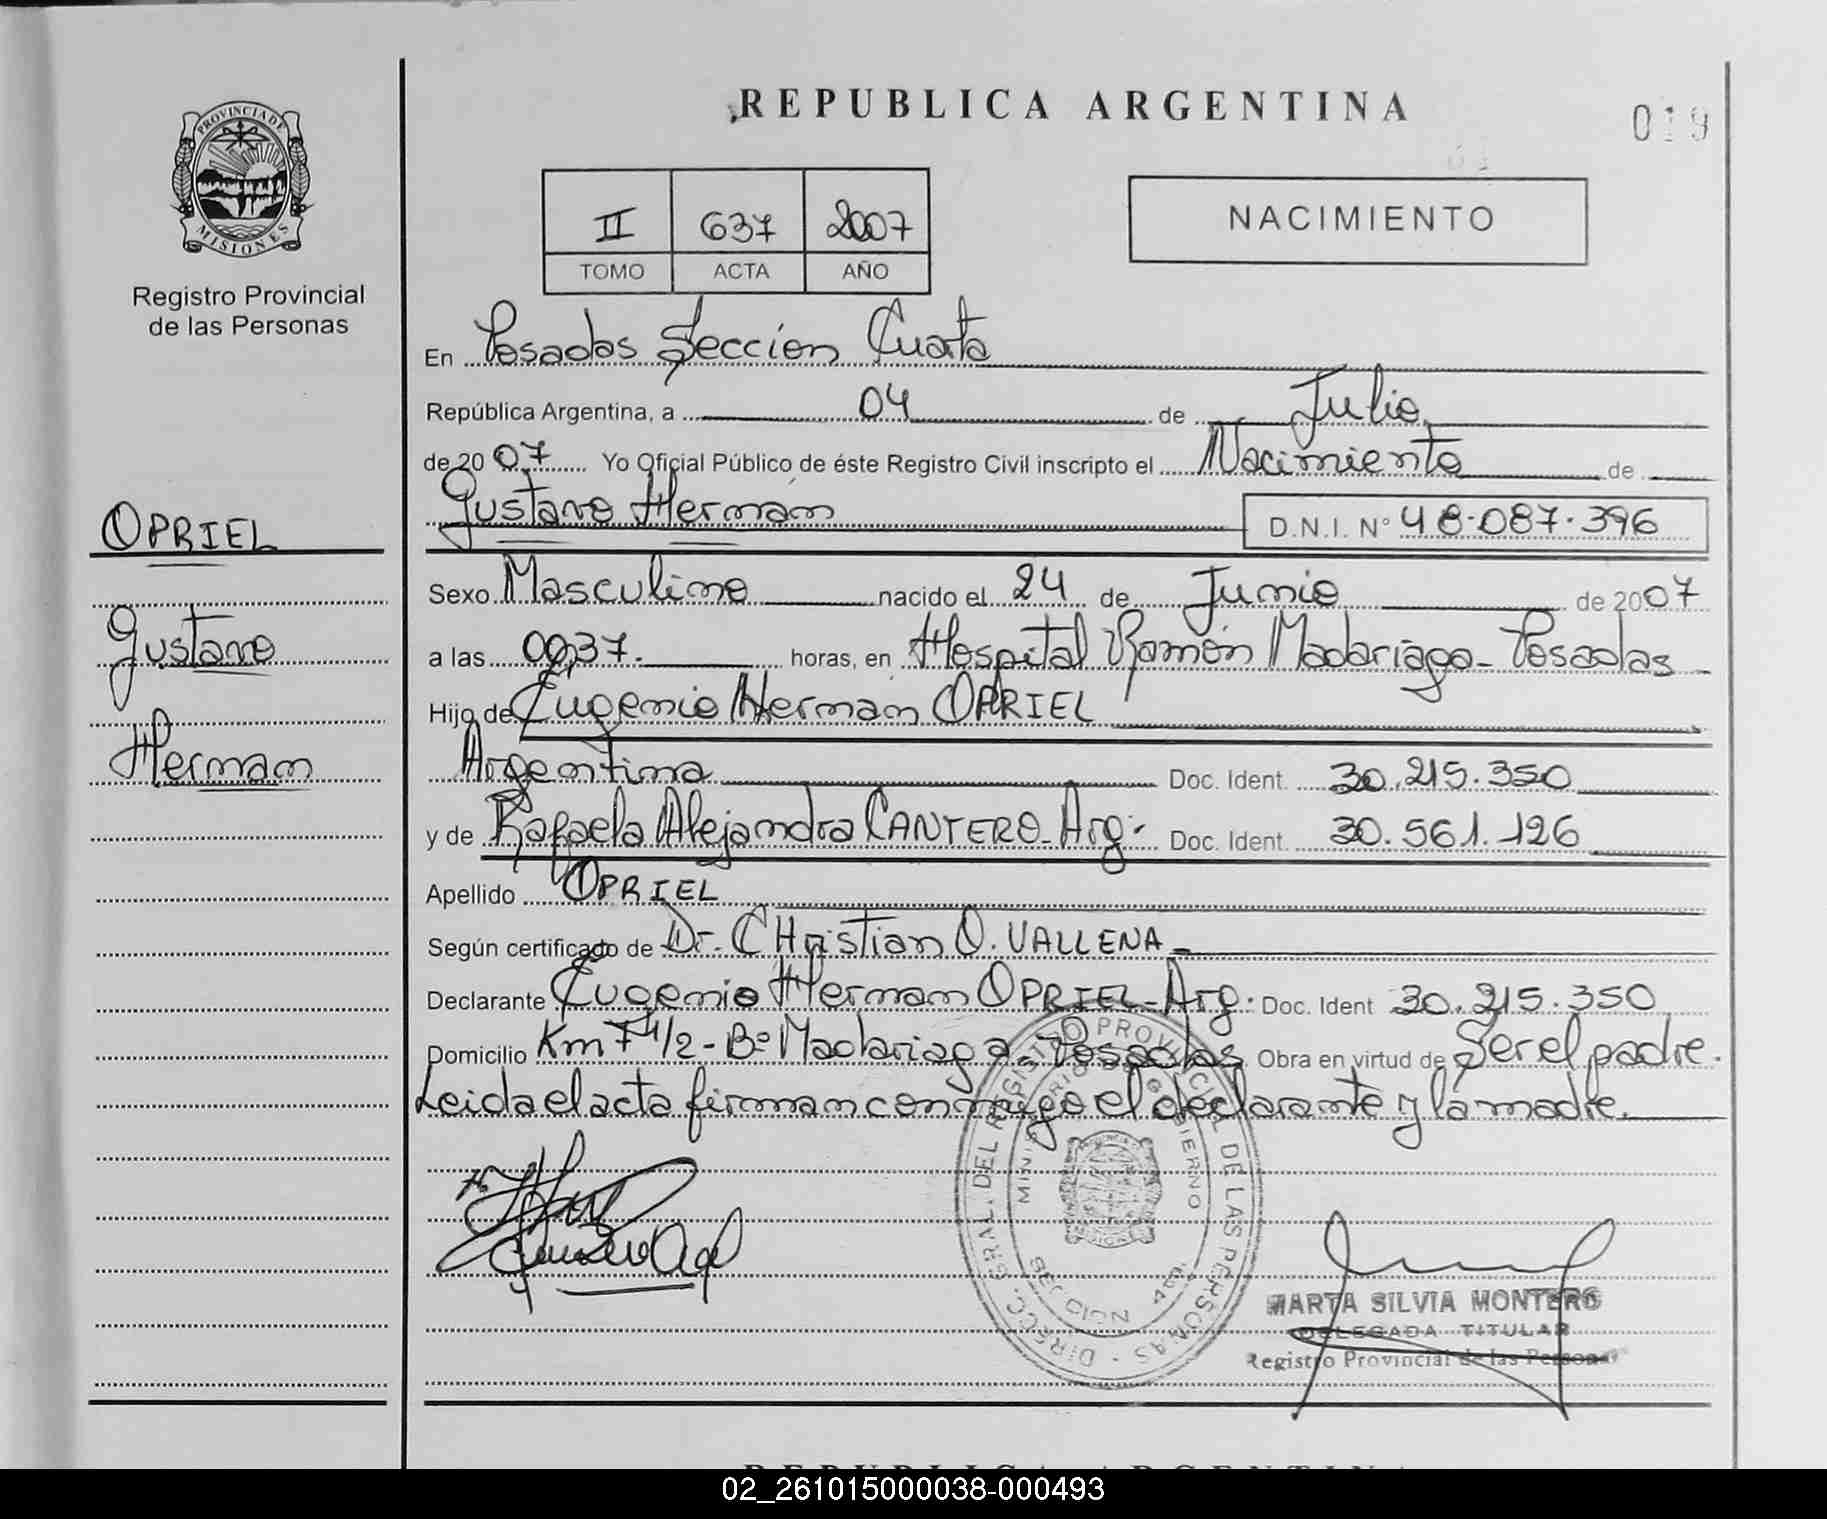 REPUBLICA ARGENTINA
019
PROVINCIA DE MISIONES
Registro Provincial
de las Personas
II 637 2007
TOMO ACTA AÑO
NACIMIENTO
En Posadas Sección Cuarta
República Argentina, a 04 de Julio
de 2007 Yo Oficial Público de éste Registro Civil inscripto el Nacimiento de
Gustavo Herman D.N.I. N° 48.087.396
OPRIEL
Gustavo
Herman
Sexo Masculino nacido el 24 de Junio de 2007
a las 00,37. horas, en Hospital Ramón Madariaga - Posadas
Hijo de Eugenio Herman OPRIEL
Argentina Doc. Ident. 30.215.350
y de Rafaela Alejandra CANTERO - Arg. Doc. Ident. 30.561.126
Apellido OPRIEL
Según certificado de Dr. CHristian O. VALLENA
Declarante Eugenio Herman OPRIEL - Arg. Doc. Ident 30.215.350
Domicilio Km 7 1/2 - Bº Madariaga - Posadas Obra en virtud de Ser el padre.
Leida el acta firman conmigo el declarante y la madre.
DIRECC. GRAL. DEL REGISTRO PROVINCIAL DE LAS PERSONAS
MINISTERIO DE GOBIERNO
MARTA SILVIA MONTERO
DELEGADA TITULAR
Registro Provincial de las Personas
02_261015000038-000493